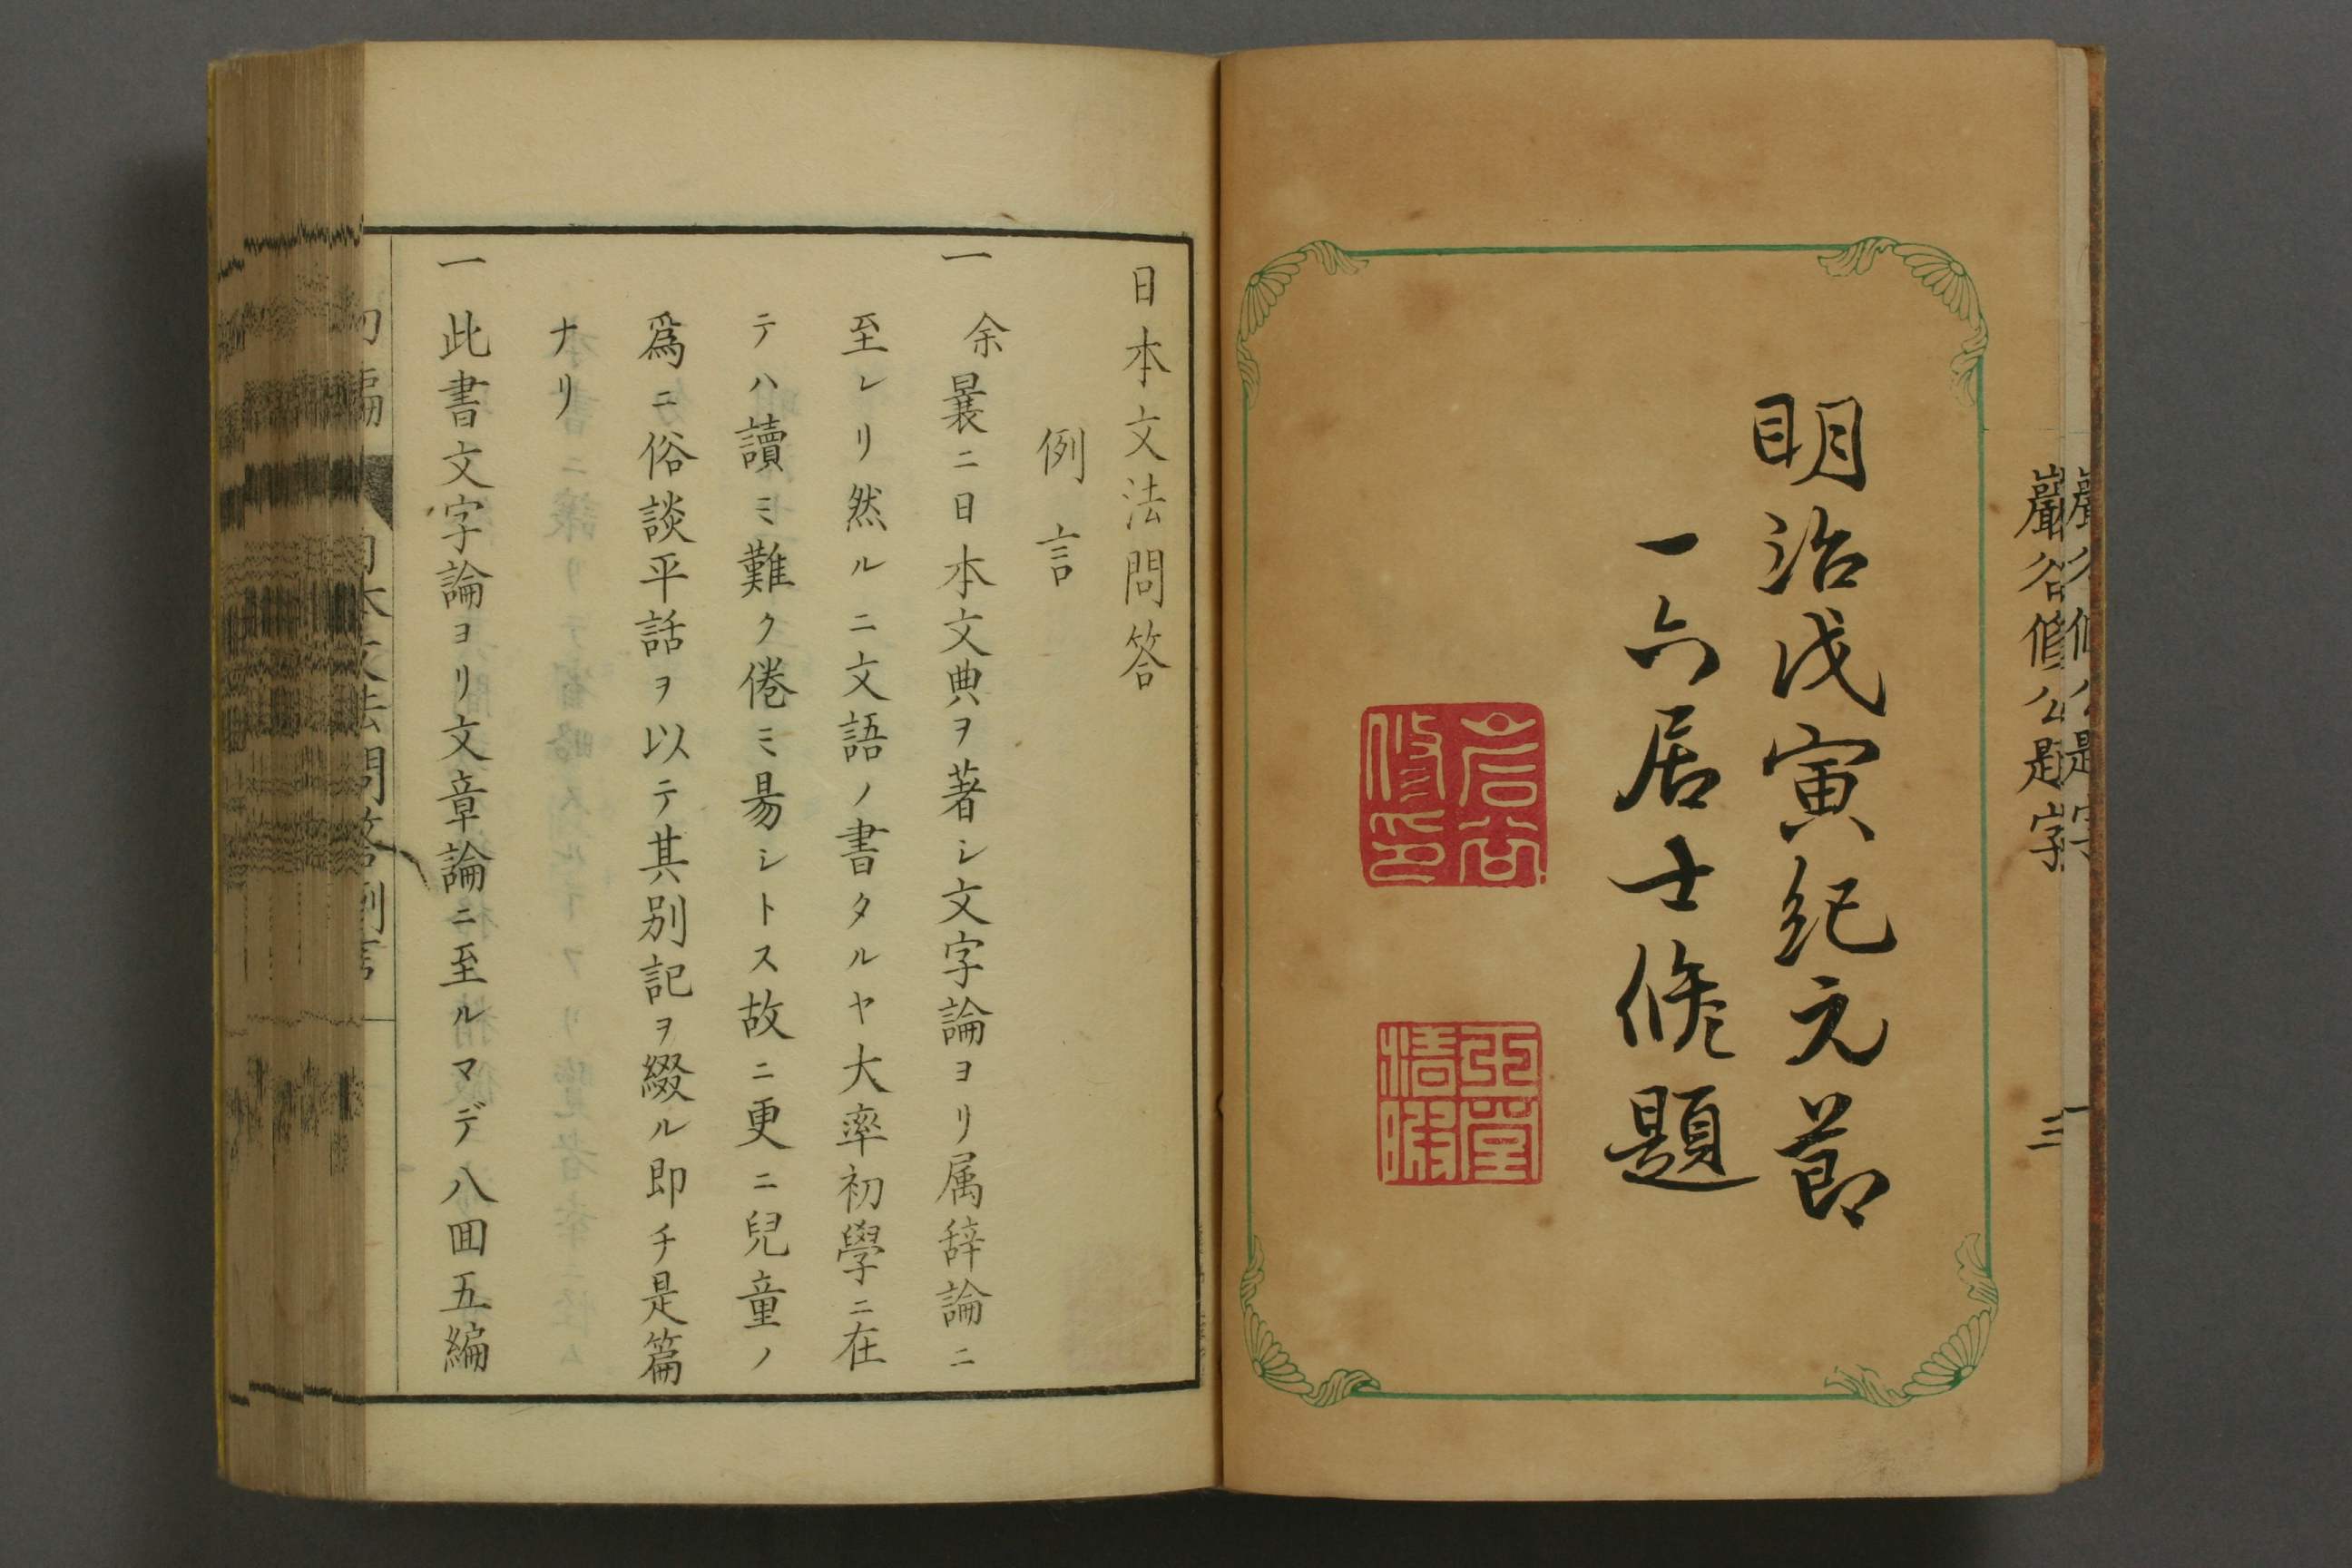 巖谷修公題字
三
明治戊寅紀元節
一六居士修題
日本文法問答
例言
一余曩ニ日本文典ヲ著シ文字論ヨリ属辞論ニ
至レリ然ルニ文語ノ書タルヤ大率初學ニ在
テハ讀ミ難ク倦ミ易シトス故ニ更ニ兒童ノ
爲ニ俗談平話ヲ以テ其別記ヲ綴ル即チ是篇
ナリ
一此書文字論ヨリ文章論ニ至ルマデ八囬五編
初編
日本文法問答例言